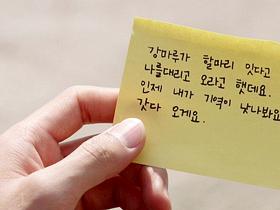 강마루가 할마리 잇다고
나를대리고 오라고 햇데요.
인제 내가 기억이 낫나봐요
갓다 오게요.